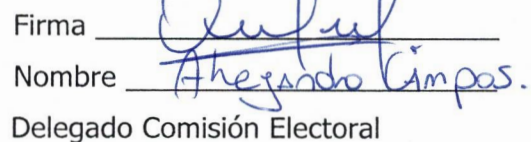 Firma
Nombre Ahejandro Campos.
Delegado Comisión Electoral